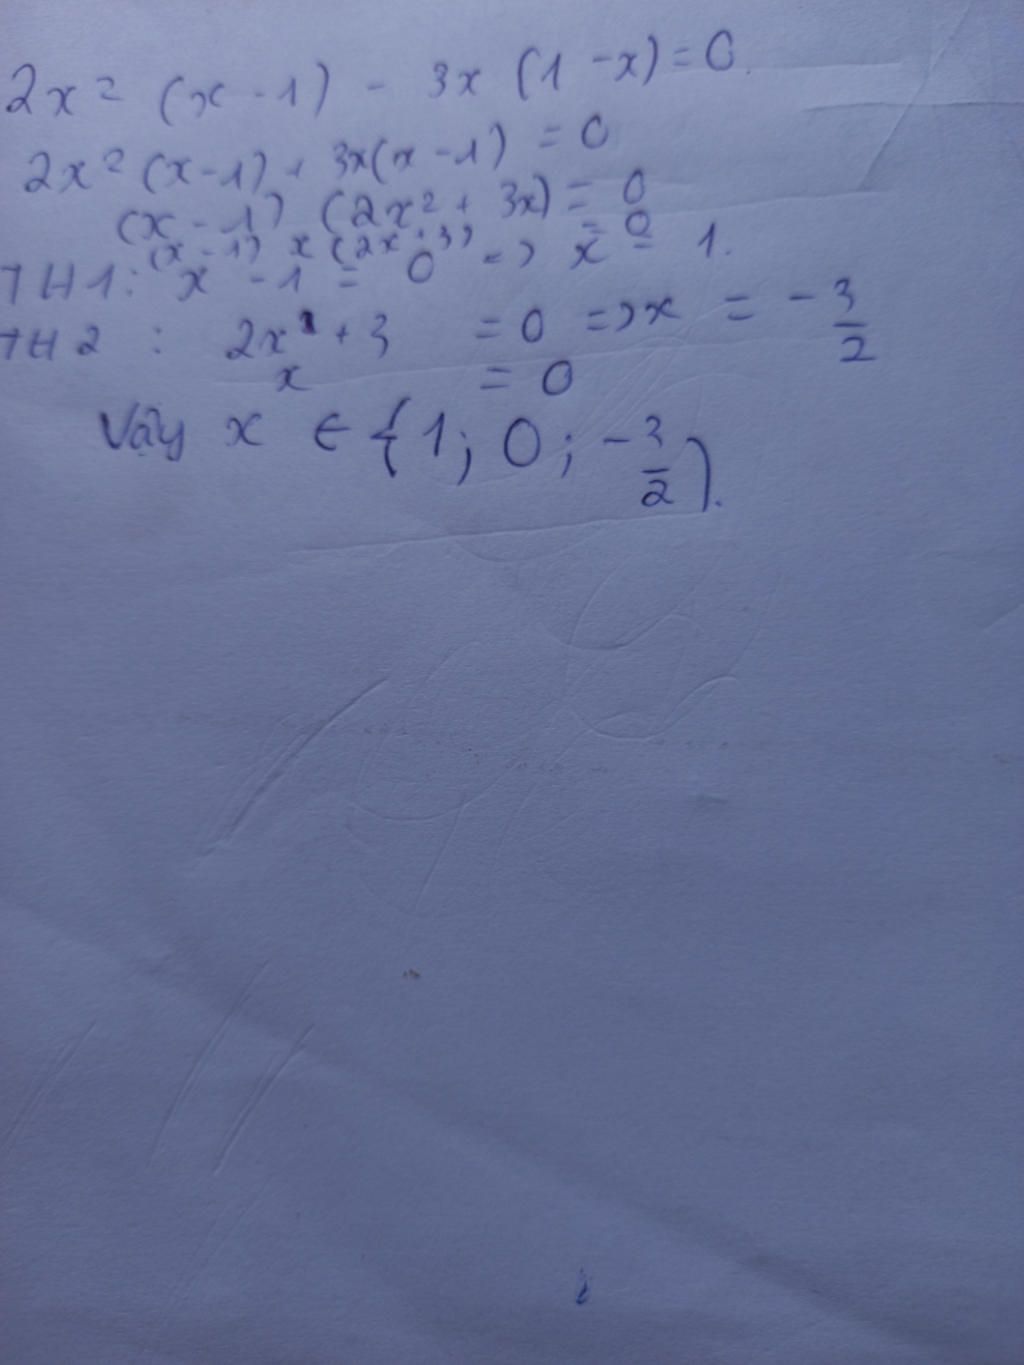 2x² (x - 1) - 3x (1 - x) = 0.
2x² (x - 1) + 3x(x - 1) = 0
(x - 1) (2x² + 3x) = 0
(x - 1) x (2x + 3) = 0
TH1: x - 1 = 0 => x = 1.
TH2 : 2x + 3 = 0 => x = -3/2
x = 0
Vậy x ∈ {1; 0; -3/2}.